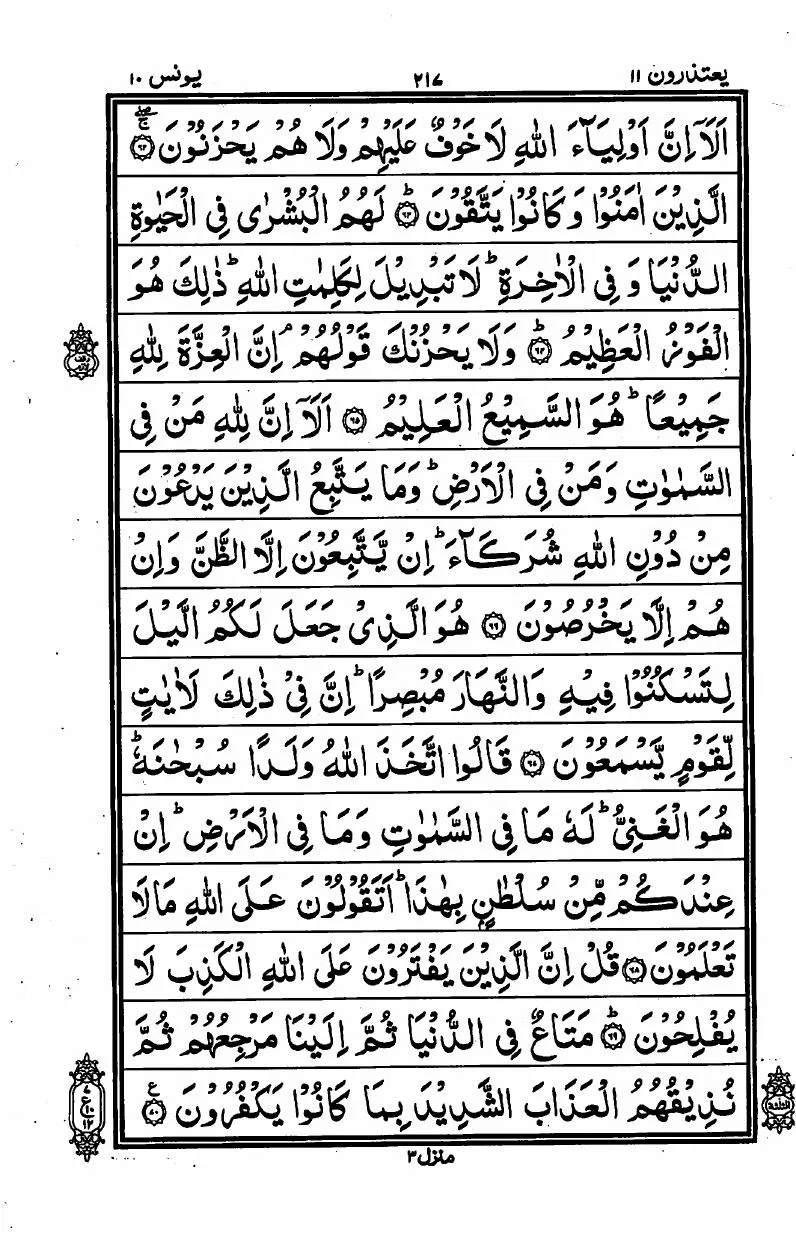 یعتذرون ۱۱ ۲۱۷ یونس ۱۰
اَلَاۤ اِنَّ اَوْلِیَآءَ اللّٰهِ لَا خَوْفٌ عَلَیْهِمْ وَلَا هُمْ یَحْزَنُوْنَ ﴿۶۲﴾ۚۖ
الَّذِیْنَ اٰمَنُوْا وَكَانُوْا یَتَّقُوْنَ ﴿۶۳﴾ؕ لَهُمُ الْبُشْرٰی فِی الْحَیٰوةِ
الدُّنْیَا وَ فِی الْاٰخِرَةِ ؕ لَا تَبْدِیْلَ لِكَلِمٰتِ اللّٰهِ ؕ ذٰلِكَ هُوَ
الْفَوْزُ الْعَظِیْمُ ﴿۶۴﴾ؕ وَلَا یَحْزُنْكَ قَوْلُهُمْ ۘ اِنَّ الْعِزَّةَ لِلّٰهِ
جَمِیْعًا ؕ هُوَ السَّمِیْعُ الْعَلِیْمُ ﴿۶۵﴾ اَلَاۤ اِنَّ لِلّٰهِ مَنْ فِی
السَّمٰوٰتِ وَمَنْ فِی الْاَرْضِ ؕ وَمَا یَتَّبِعُ الَّذِیْنَ یَدْعُوْنَ
مِنْ دُوْنِ اللّٰهِ شُرَكَآءَ ؕ اِنْ یَّتَّبِعُوْنَ اِلَّا الظَّنَّ وَاِنْ
هُمْ اِلَّا یَخْرُصُوْنَ ﴿۶۶﴾ هُوَ الَّذِیْ جَعَلَ لَكُمُ الَّیْلَ
لِتَسْكُنُوْا فِیْهِ وَالنَّهَارَ مُبْصِرًا ؕ اِنَّ فِیْ ذٰلِكَ لَاٰیٰتٍ
لِّقَوْمٍ یَّسْمَعُوْنَ ﴿۶۷﴾ قَالُوا اتَّخَذَ اللّٰهُ وَلَدًا سُبْحٰنَهٗ ؕ
هُوَ الْغَنِیُّ ؕ لَهٗ مَا فِی السَّمٰوٰتِ وَمَا فِی الْاَرْضِ ؕ اِنْ
عِنْدَكُمْ مِّنْ سُلْطٰنٍۭ بِهٰذَا ؕ اَتَقُوْلُوْنَ عَلَی اللّٰهِ مَا لَا
تَعْلَمُوْنَ ﴿۶۸﴾ قُلْ اِنَّ الَّذِیْنَ یَفْتَرُوْنَ عَلَی اللّٰهِ الْكَذِبَ لَا
یُفْلِحُوْنَ ﴿۶۹﴾ؕ مَتَاعٌ فِی الدُّنْیَا ثُمَّ اِلَیْنَا مَرْجِعُهُمْ ثُمَّ
نُذِیْقُهُمُ الْعَذَابَ الشَّدِیْدَ بِمَا كَانُوْا یَكْفُرُوْنَ ﴿۷۰﴾ع
۷
ع
۱۰
۱۲
منزل ۳